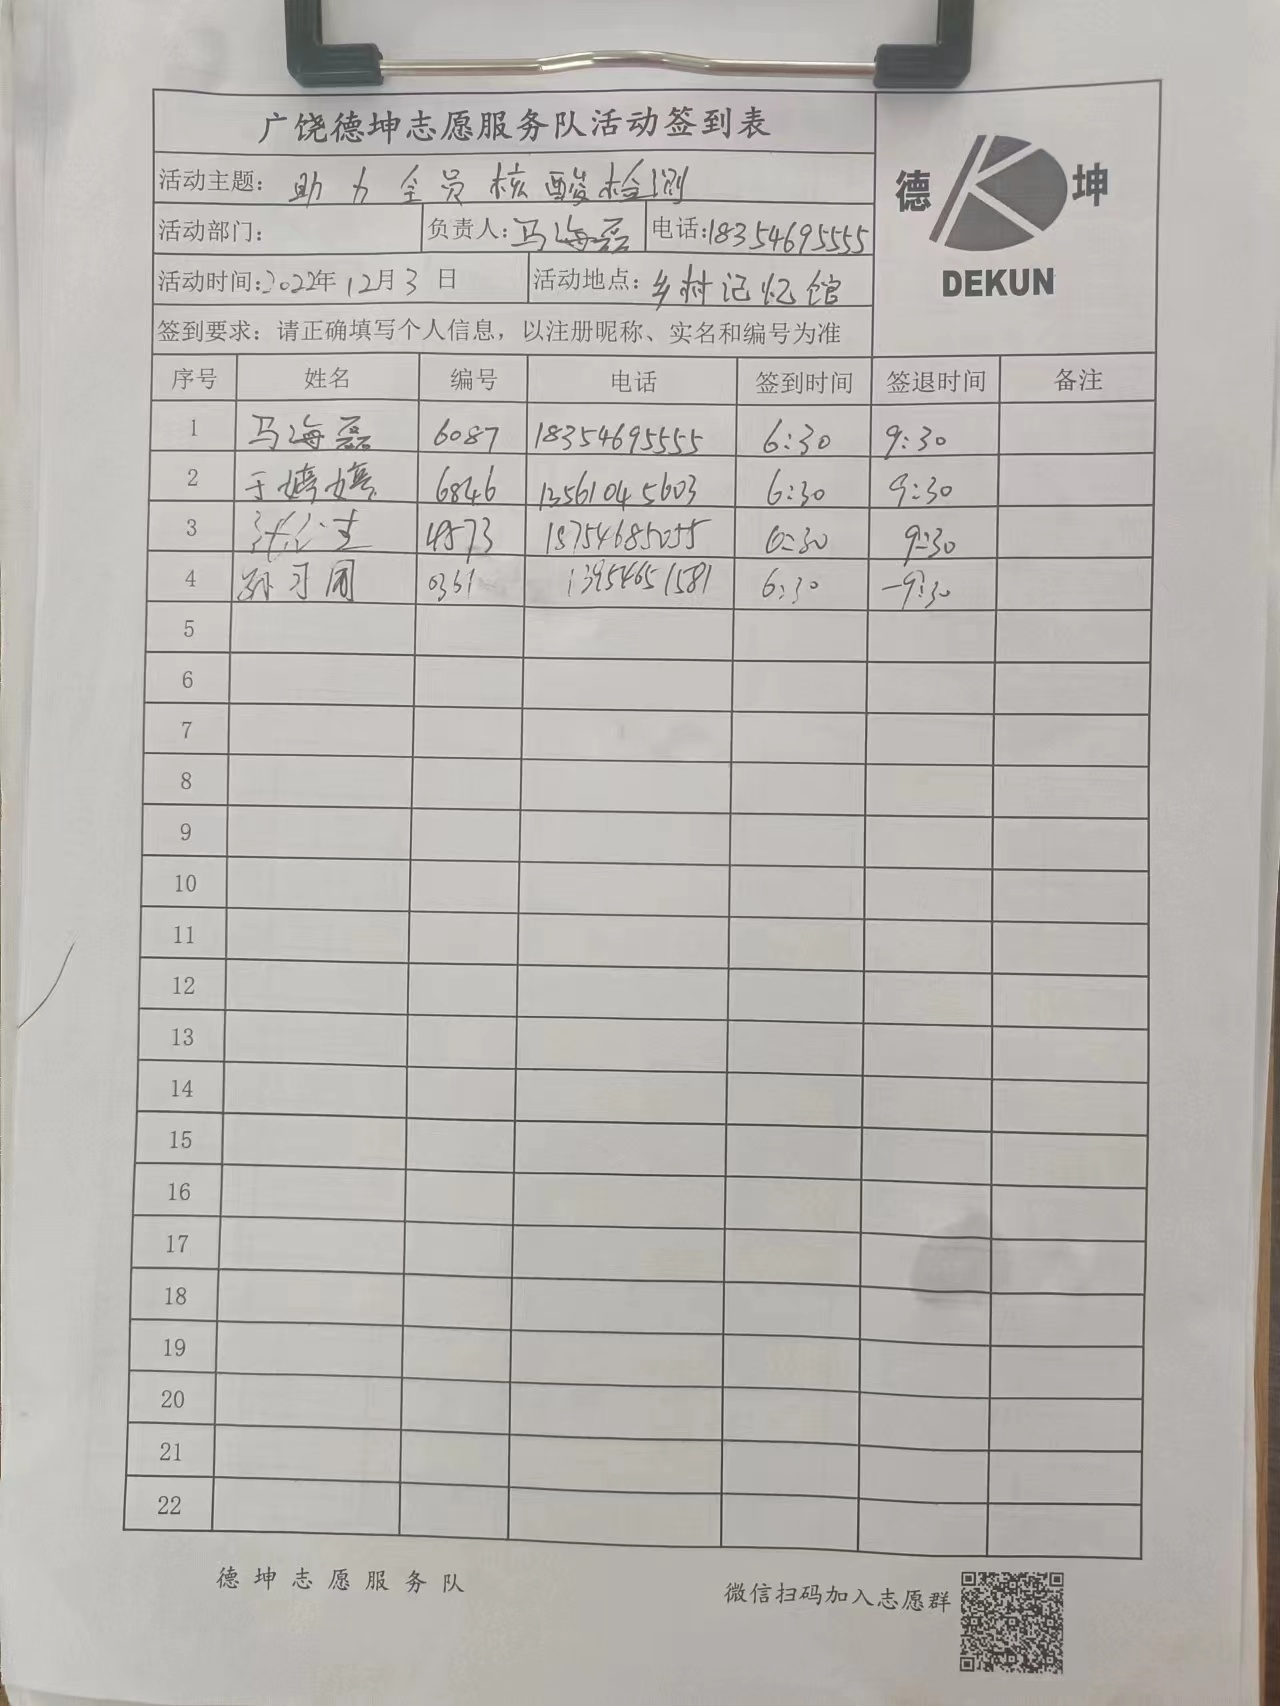 广饶德坤志愿服务队活动签到表
德 坤
DEKUN
活动主题: 助力全员核酸检测
活动部门: 负责人: 马海磊 电话: 18354695555
活动时间: 2022年12月3日 活动地点: 乡村记忆馆
签到要求: 请正确填写个人信息，以注册昵称、实名和编号为准
序号 姓名 编号 电话 签到时间 签退时间 备注
1 马海磊 6087 18354695555 6:30 9:30
2 于婷婷 6846 13561045603 6:30 9:30
3 4573 18754685055 6:30 9:30
4 孙习周 0361 13954651581 6:30 -9:30
5
6
7
8
9
10
11
12
13
14
15
16
17
18
19
20
21
22
德坤志愿服务队 微信扫码加入志愿群